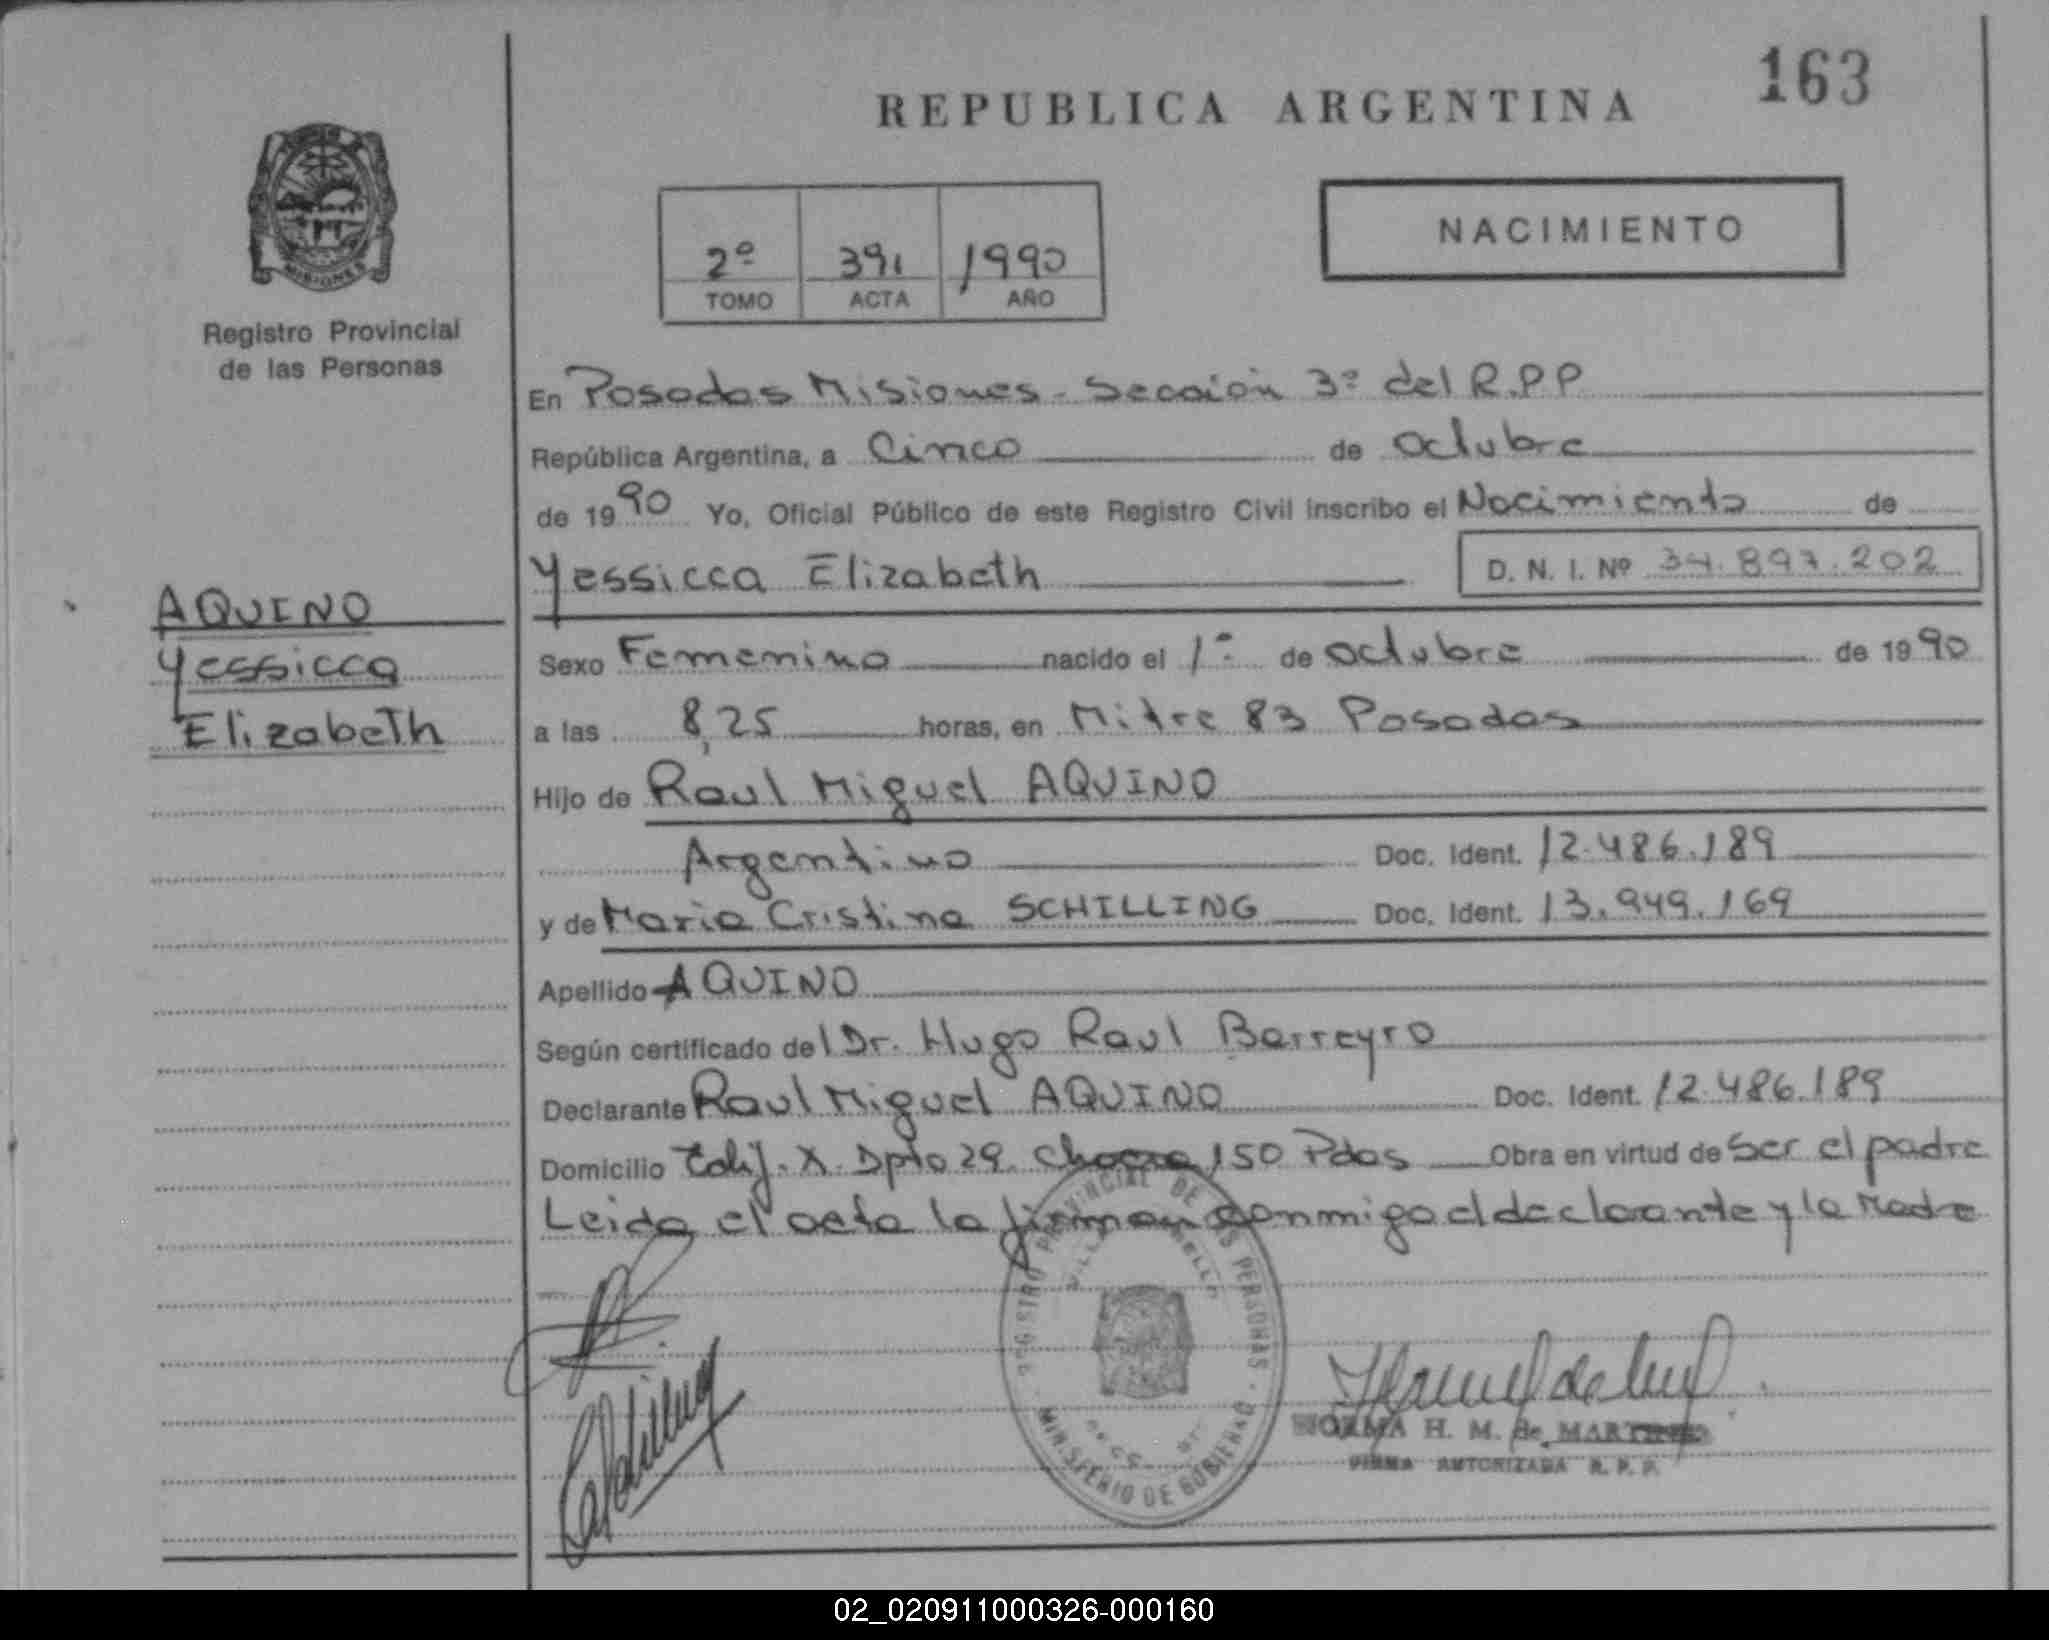 163
REPUBLICA ARGENTINA
MISIONES
Registro Provincial
de las Personas
2º 391 1990
TOMO ACTA AÑO
NACIMIENTO
En Posadas Misiones - Sección 3ª del R.P.P
República Argentina, a Cinco de Octubre
de 1990 Yo, Oficial Público de este Registro Civil inscribo el Nacimiento de
Yessicca Elizabeth D. N. I. Nº 34.897.202
AQUINO
Yessicca
Elizabeth
Sexo Femenino nacido el 1º de Octubre de 1990
a las 8,25 horas, en Mitre 83 Posadas
Hijo de Raul Miguel AQUINO
Argentino Doc. Ident. 12.486.189
y de Maria Cristina SCHILLING Doc. Ident. 13.949.169
Apellido AQUINO
Según certificado del Dr. Hugo Raul Barreyro
Declarante Raul Miguel AQUINO Doc. Ident. 12.486.189
Domicilio Edif. X Dpto 29 Chacra 150 Pdas Obra en virtud de Ser el padre
Leida el acta la firman conmigo el declarante y la Madre
REGISTRO PROVINCIAL DE LAS PERSONAS
MINISTERIO DE GOBIERNO
NORMA H. M. de
FIRMA AUTORIZADA R. P. P.
02_020911000326-000160